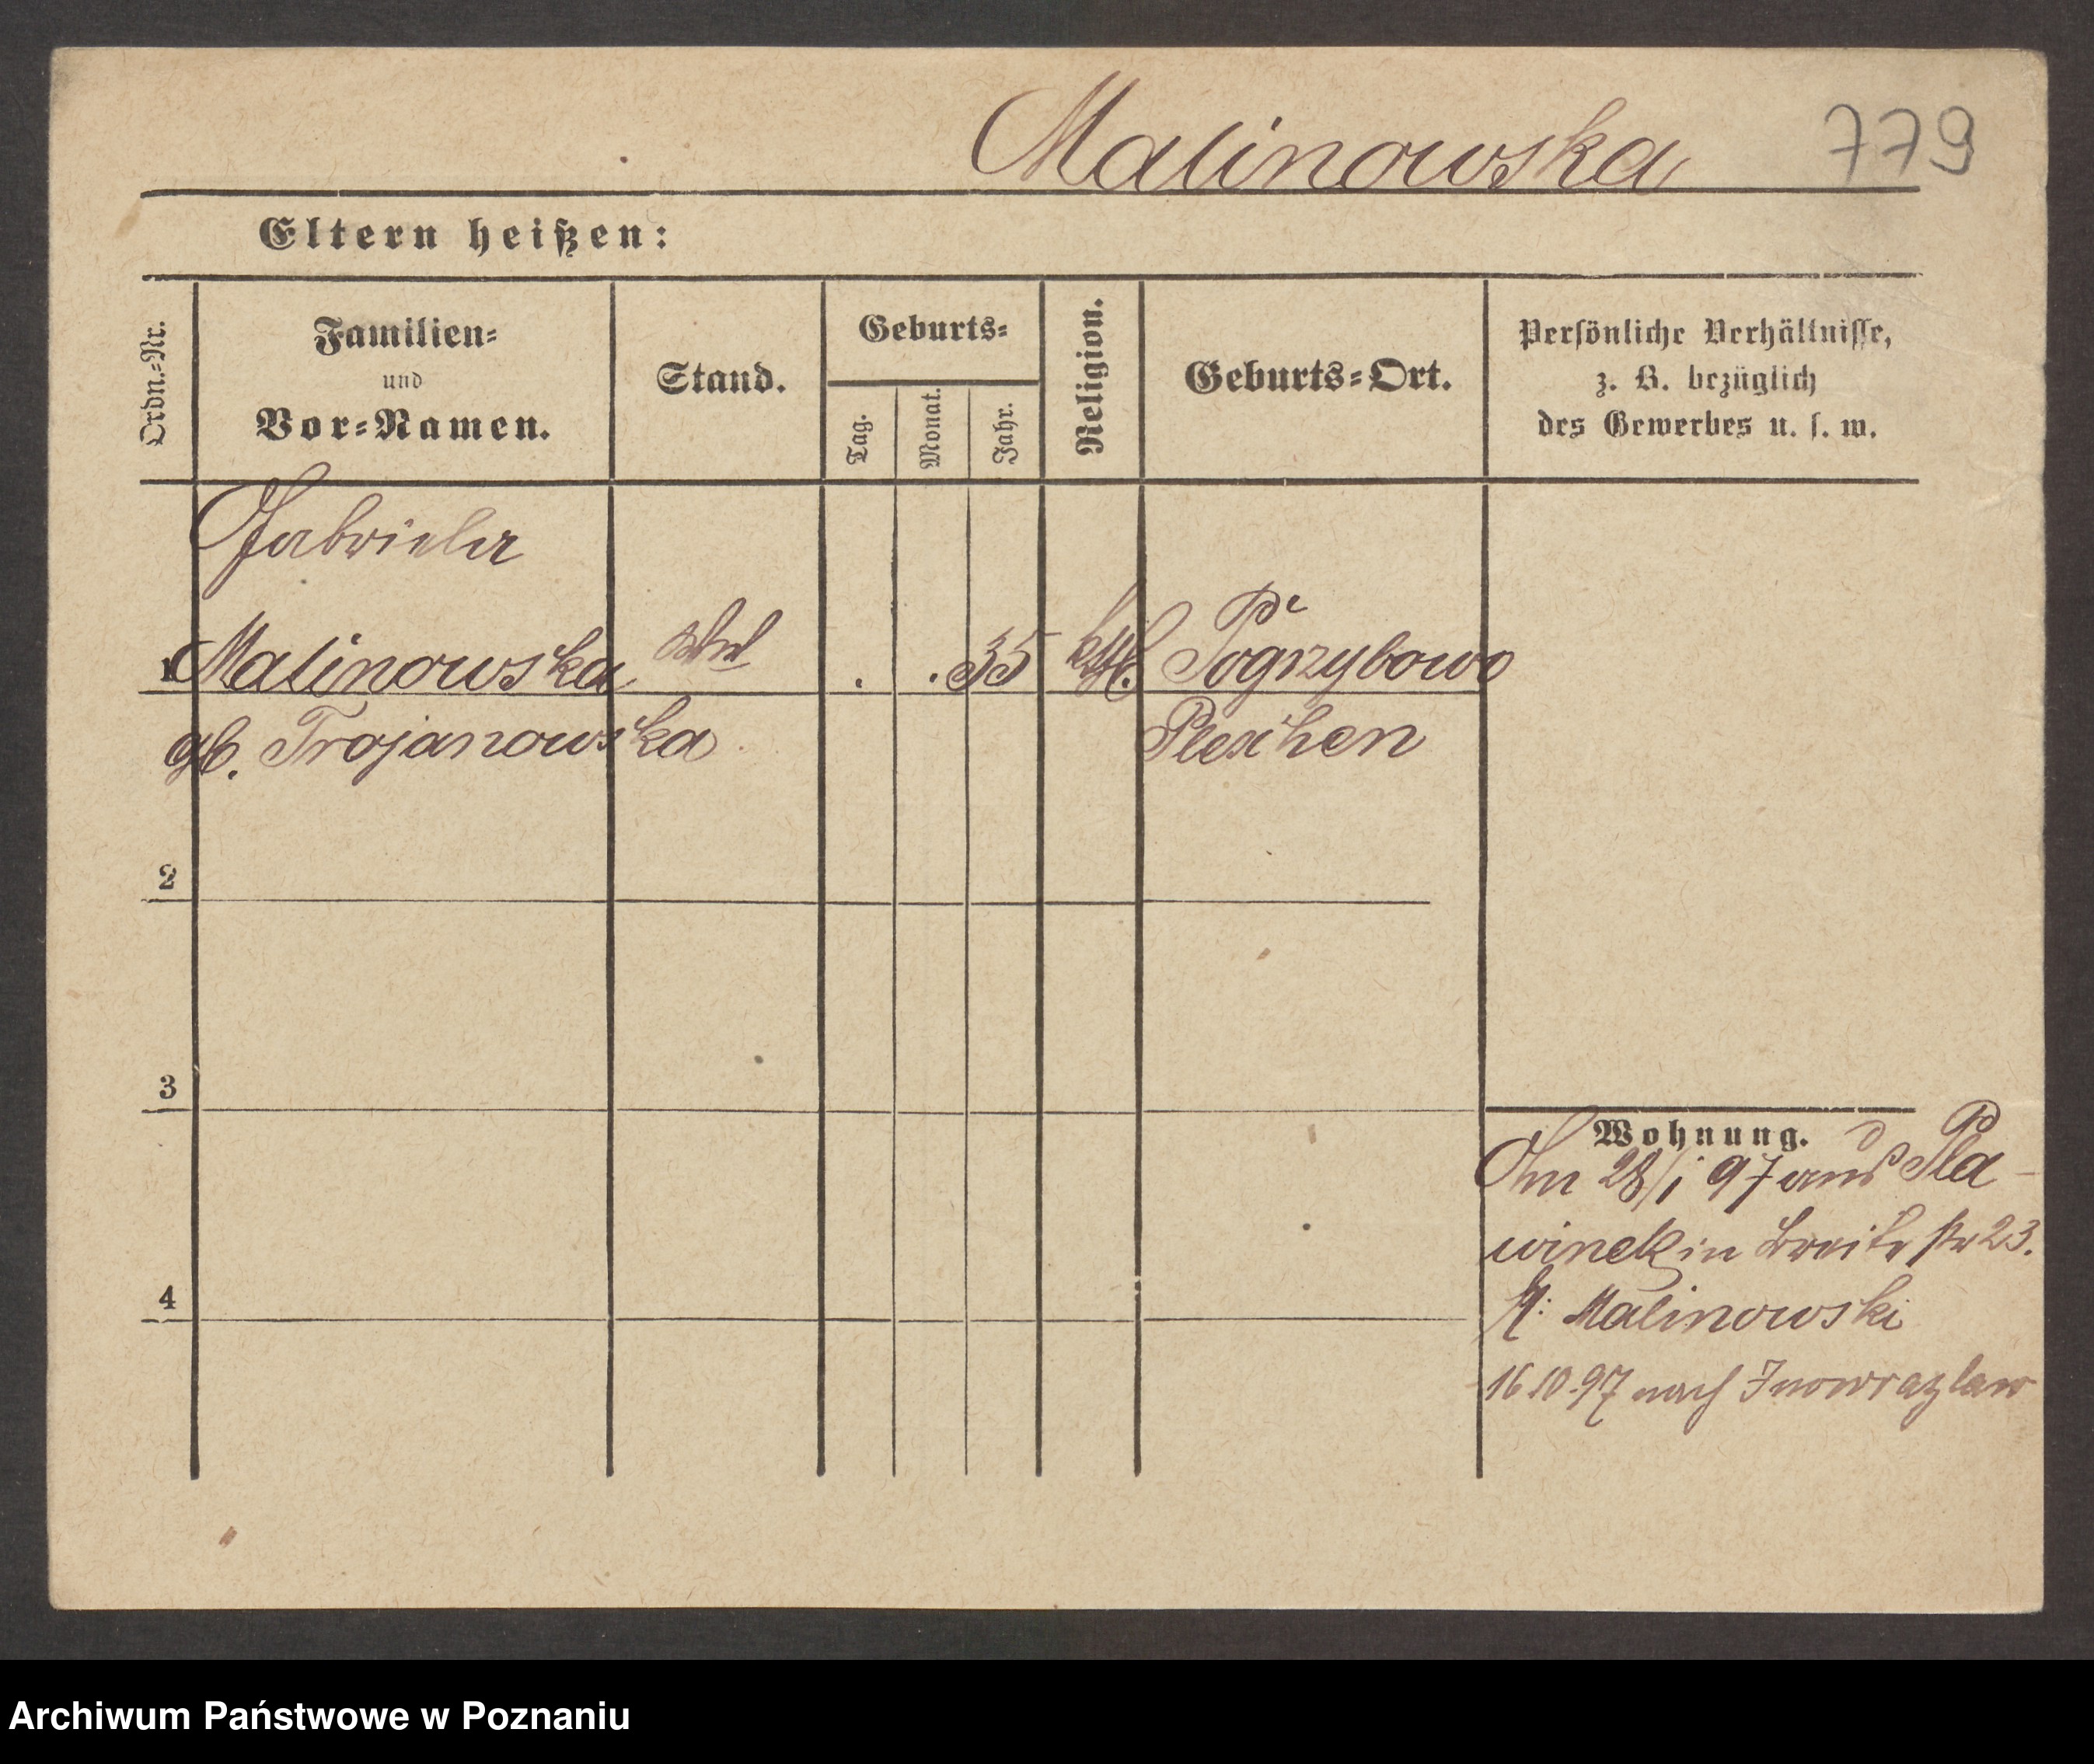 Malinowska 779
Eltern heißen:
Ordn.-Nr.
Familien-
und
Vor-Namen.
Stand.
Geburts-
Tag.
Monat.
Jahr.
Religion.
Geburts-Ort.
Persönliche Verhältnisse,
z. B. bezüglich
des Gewerbes u. s. w.
Gabriela
1 Malinowska . . 35 kth. Pogrzybowo
gb. Trojanowska Pleschen
2
3
4
Wohnung.
Am 28/1 97 aus Pla-
winek in Breite str 23.
Malinowski
16 10. 97 nach Inowrazlaw
Archiwum Państwowe w Poznaniu